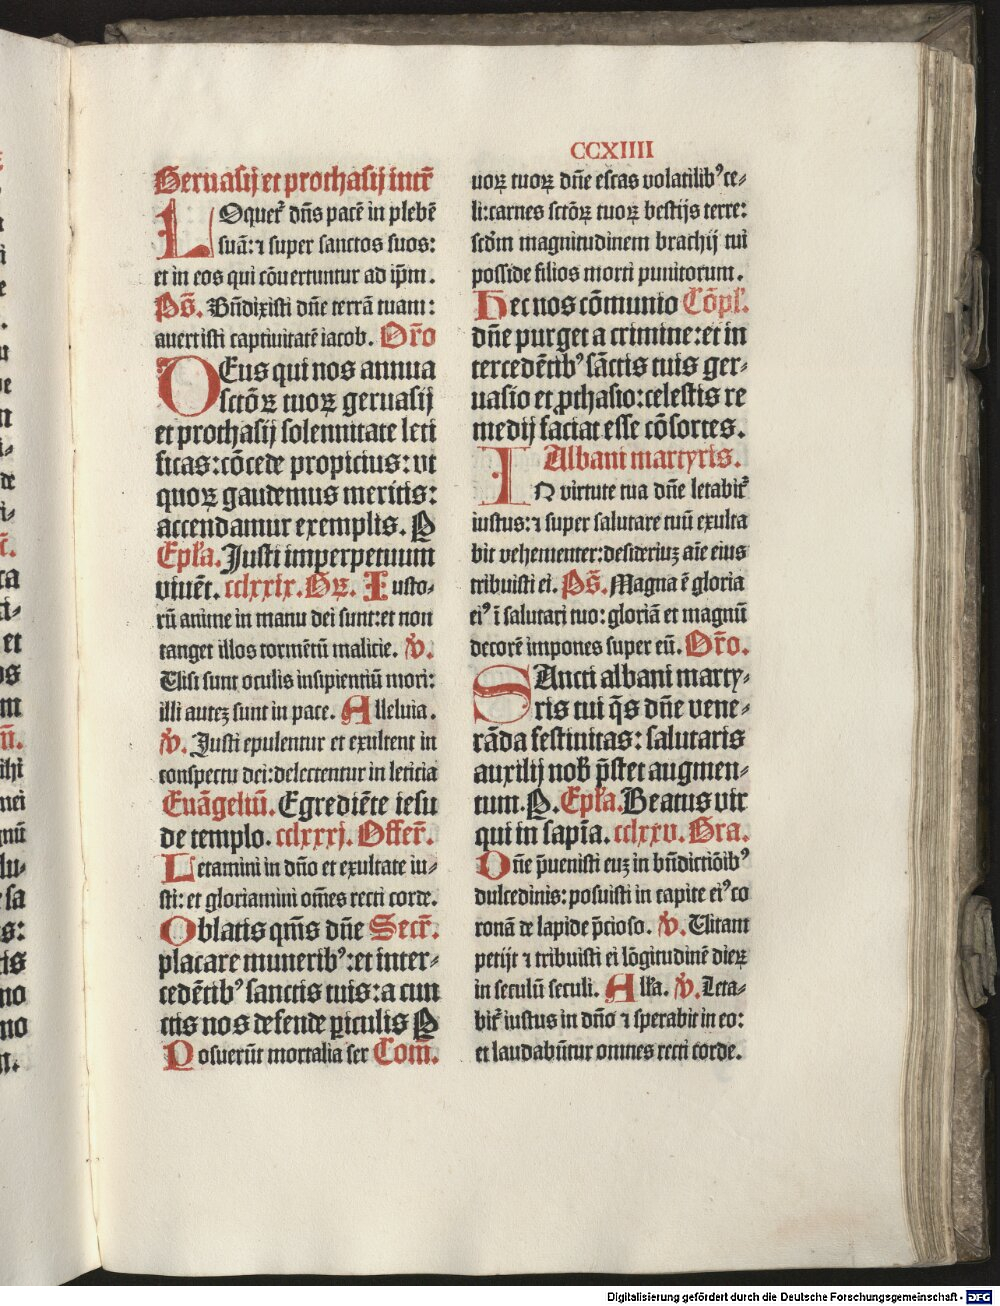 CCXIIII
Geruasij et prothasij intr̃
LOquet᷑ dñs pacē in plebē
suā: ⁊ super sanctos suos:
et in eos qui cōuertuntur ad ip̄m.
Ps̄. Bñdixisti dñe terrā tuam:
auertisti captiuitatē iacob. Or̄o
DEus qui nos annua
sctōꝝ tuoꝝ geruasij
et prothasij solennitate leti
ficas: cōcede propicius: vt
quoꝝ gaudemus meritis:
accendamur exemplis. P
Ep̄la. Justi imperpetuum
viuēt. cclxxix. Gꝝ. Iusto-
rū anime in manu dei sunt: et non
tanget illos tormētū malicie. ℣.
Uisi sunt oculis insipientiū mori:
illi autēꝫ sunt in pace. Alleluia.
℣. Justi epulentur et exultent in
conspectu dei: delectentur in leticia
Euāgeliū. Egrediēte iesu
de templo. cclxxxj. Offer̄.
Letamini in dño et exultate iu-
sti: et gloriamini om̄es recti corde.
Oblatis qm̄s dñe Secr̄.
placare munerib⁹: et inter-
cedētib⁹ sanctis tuis: a cun
ctis nos defende ꝑiculis P
Posuerūt mortalia ser Com̄.
uoꝝ tuoꝝ dñe escas volatilib⁹ ce-
li: carnes sctōꝝ tuoꝝ bestijs terre:
scdm̄ magnitudinem brachij tui
posside filios morti punitorum.
Hec nos cōmunio Cōpl̄.
dñe purget a crimine: et in
tercedētib⁹ sāctis tuis ger-
uasio et ꝓthasio: celestis re
medij faciat esse cōsortes.
Albani martyris.
IN virtute tua dñe letabit᷑
iustus: ⁊ super salutare tuū exulta
bit vehementer: desideriuꝫ aīe eius
tribuisti ei. Ps̄. Magna ē gloria
ei⁹ ī salutari tuo: gloriā et magnū
decorē impones super eū. Or̄o.
SAncti albani marty-
ris tui q̄s dñe vene-
rāda festiuitas: salutaris
auxilij nob̄ p̄stet augmen-
tum. P. Ep̄la. Beatus vir
qui in sapīa. cclxxv. Gra.
Dñe p̄uenisti euꝫ in bñdictiōib⁹
dulcedinis: posuisti in capite ei⁹ co
ronā de lapide p̄cioso. ℣. Uitam
petijt ⁊ tribuisti ei lōgitudinē dieꝝ
in seculū seculi. All̄a. ℣. Leta-
bit᷑ iustus in dño ⁊ sperabit in eo:
et laudabūtur omnes recti corde.
Digitalisierung gefördert durch die Deutsche Forschungsgemeinschaft - DFG